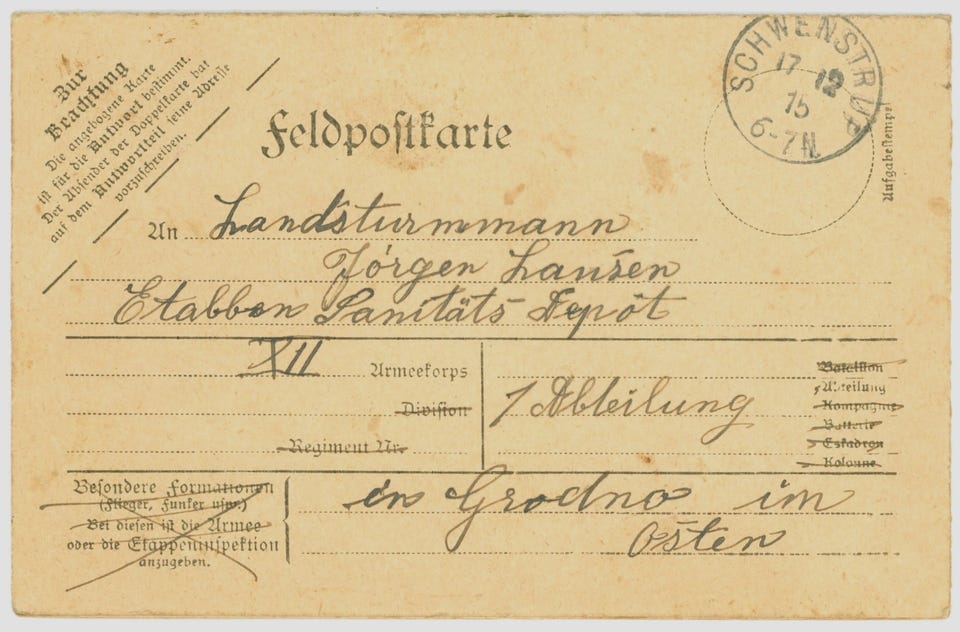 Zur
Beachtung
Die angebogene Karte
ist für die Antwort bestimmt.
Der Absender der Doppelkarte hat
auf dem Antwortteil seine Adresse
vorzuschreiben.
Feldpostkarte
SCHWENSTRUP
17 12
15
6-7N.
Aufgabestempel
An Landsturmmann
Jörgen Lausen
Etabben Sanitäts Depot
XII Armeekorps
Division
Regiment Nr.
1 Abteilung
Bataillon
Abteilung
Kompagnie
Batterie
Eskadron
Kolonne
Besondere Formationen
(Flieger, Funker usw.)
Bei diesen ist die Armee
oder die Etappeninspektion
anzugeben.
in Grodno im
Osten